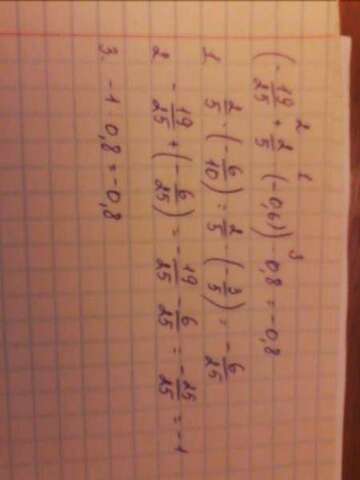 (-19/25 + 2/5 (-0,6)) 0,8 = -0,8
2 1 3
1. 2/5 · (-6/10) = 2/5 · (-3/5) = -6/25
2. -19/25 + (-6/25) = -19/25 - 6/25 = -25/25 = -1
3. -1 0,8 = -0,8